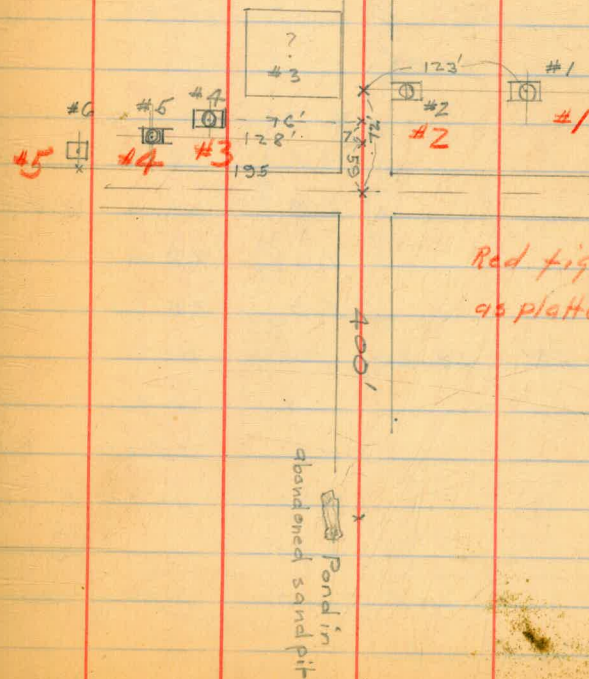 ?
#3
123'
#1
#6
#5
#4
#2
#1
76'
#2
128'
7
#5
#4
#3
59
195
Red fig
as platte
400'
Pond in
abandoned sandpit